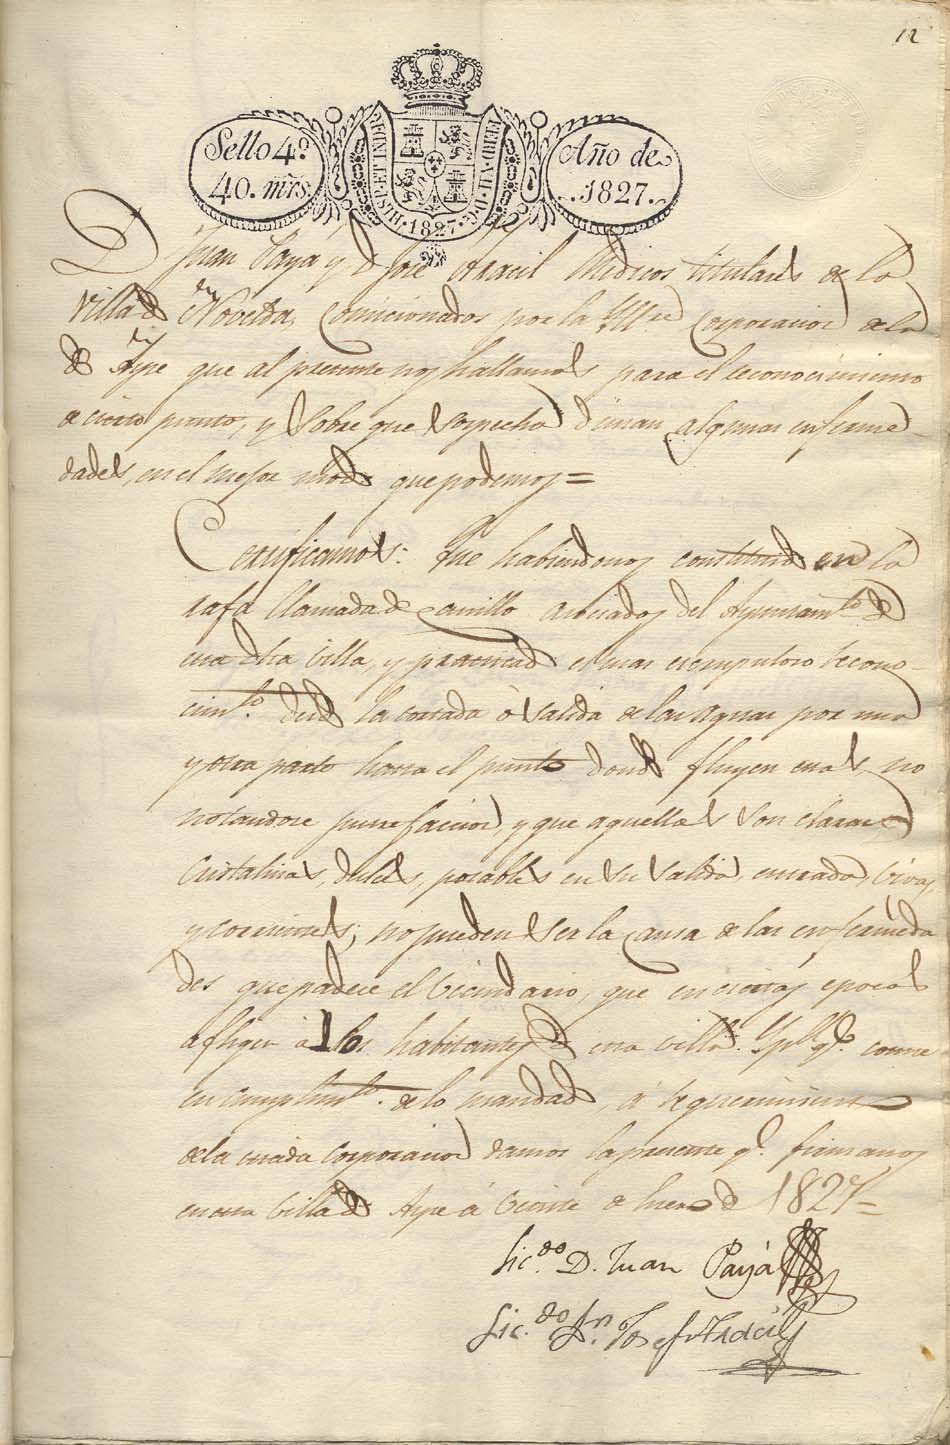 12
Sello 4º
40. mrs.
HISP. ET IND. R. 1827. FERD. VII. D. G.
Año de
1827.
D. Juan Paya y D. José Aracil Medicos titulares de la
Villa de Novelda, Comicionados por la Ille Corporacion de la
de Aspe que al presente nos hallamos para el reconocimiento
de cierto punto, y sobre que sospecha dimanan algunas enferme-
dades, en el mejor modo que podemos =
Certificamos: Que habiendonos constituido en la
rafa llamada de Carrillo asociados del Ayuntamto de
esta dha Villa, y practicado el mas escrupuloso recono-
cimto. desde la cortada ò salida de las Aguas por una
y otra parte hasta el punto donde fluyen estas, no
notandose putrefaccion, y que aquellas son claras
Cristalinas, dulces, potables en su salida, entrada, vivas,
y corrientes; no pueden ser la causa de las enfermeda
des que padece el Vecindario, que en ciertas epocas
afligen à los habitantes de esta villa. Y pa. qe. conste
en cumplimto. de lo mandado, à requerimiento
de la citada Corporacion damos la presente qe. firmamos
en esta Villa de Aspe á Veinte de Enero de 1827=
Licdo. D. Juan Payá
Licdo. Dn. Josef Aracil